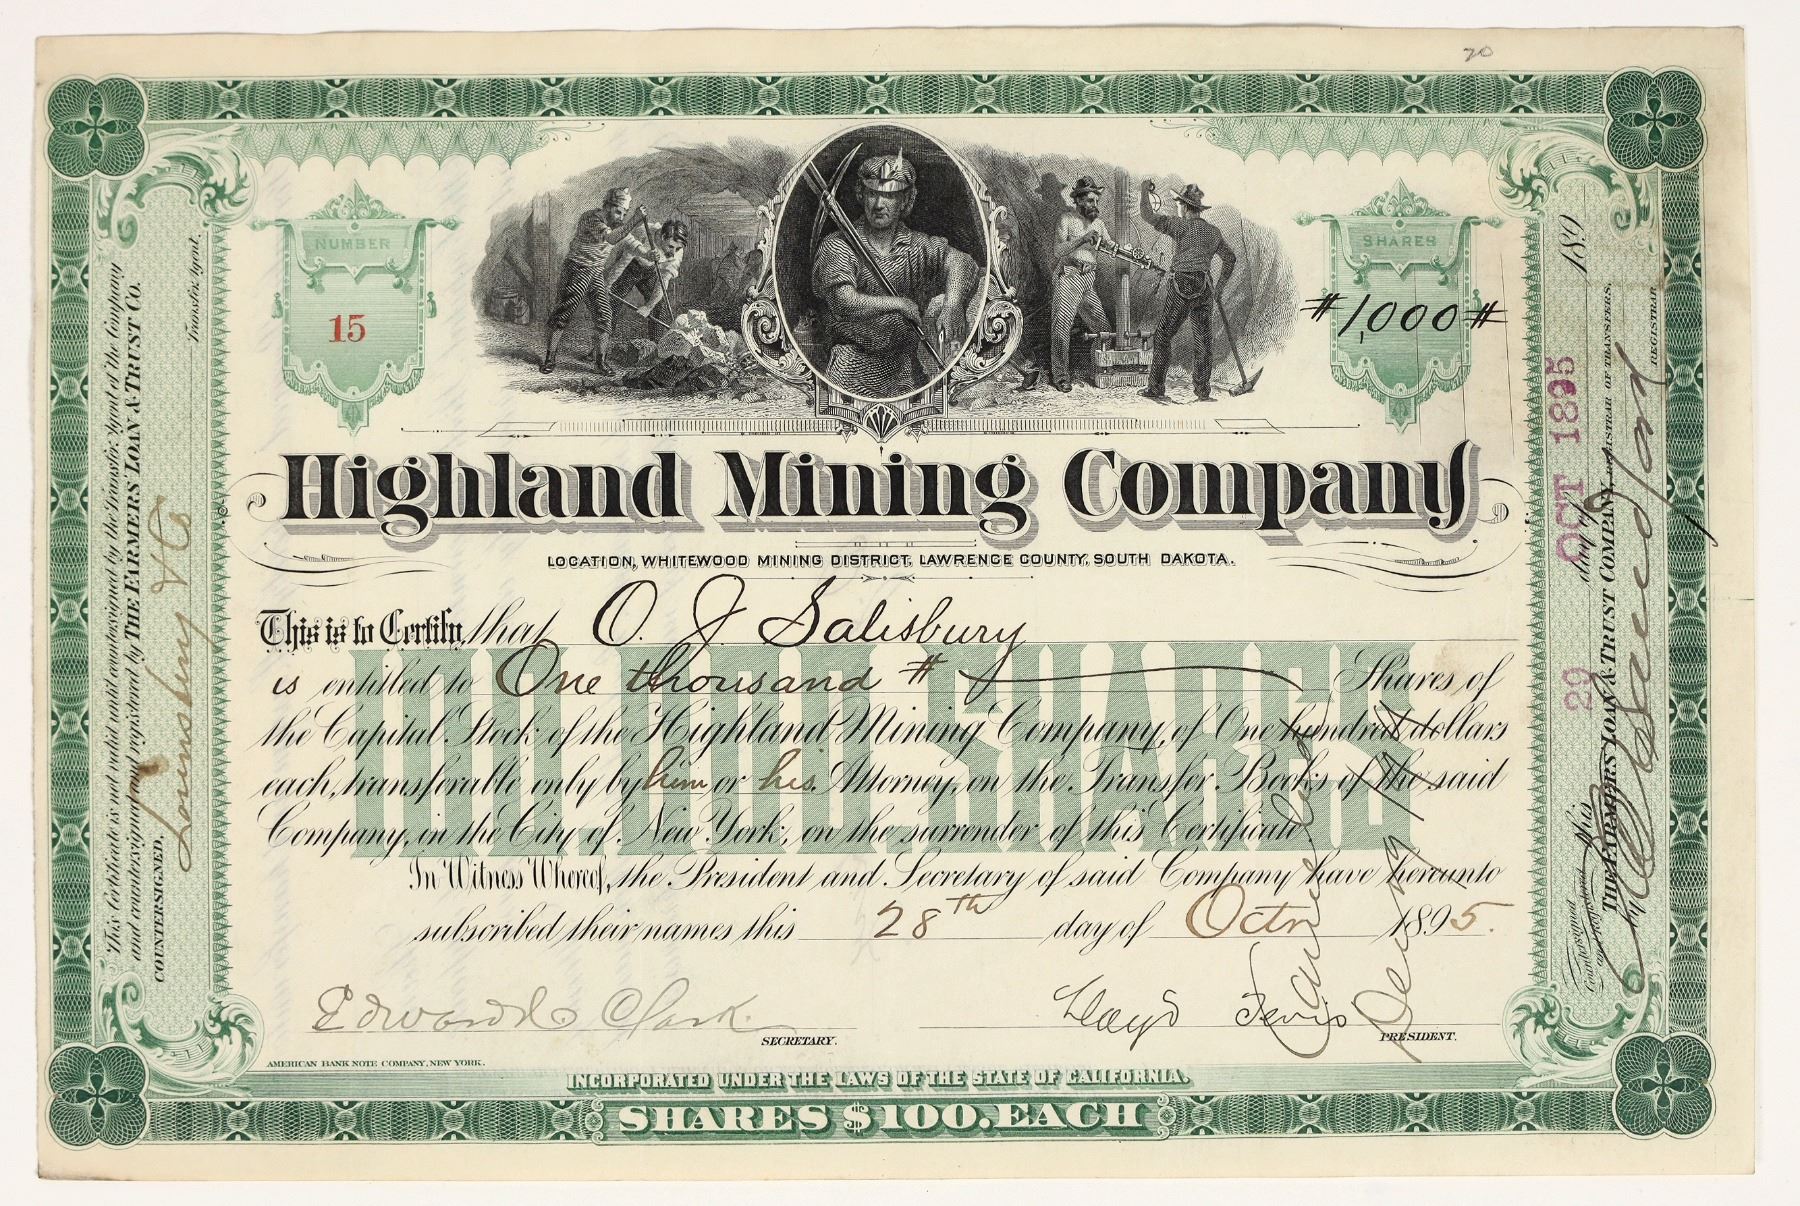 20
NUMBER
15
SHARES
#1,000#
Highland Mining Company
LOCATION, WHITEWOOD MINING DISTRICT, LAWRENCE COUNTY, SOUTH DAKOTA.
This is to Certify, that O. J. Salisbury
is entitled to One thousand # Shares of
the Capital Stock of the Highland Mining Company, of One hundred dollars
each, transferable only by him or his Attorney, on the Transfer Books of the said
Company, in the City of New York, on the surrender of this Certificate
100,000 SHARES
In Witness Whereof, the President and Secretary of said Company have hereunto
subscribed their names this 28th day of Octr 1895.
Edward Clark
SECRETARY.
Lloyd Tevis
PRESIDENT.
Cancelled
AMERICAN BANK NOTE COMPANY, NEW YORK.
INCORPORATED UNDER THE LAWS OF THE STATE OF CALIFORNIA.
SHARES $100. EACH
This Certificate is not valid until countersigned by the Transfer Agent of the Company
and countersigned and registered by THE FARMERS LOAN & TRUST CO.
COUNTERSIGNED,
Lounsbery & Co
Transfer Agent.
Countersigned
and Registered this day of 189
29 OCT 1895
THE FARMERS' LOAN & TRUST COMPANY, REGISTRAR OF TRANSFERS.
by
REGISTRAR